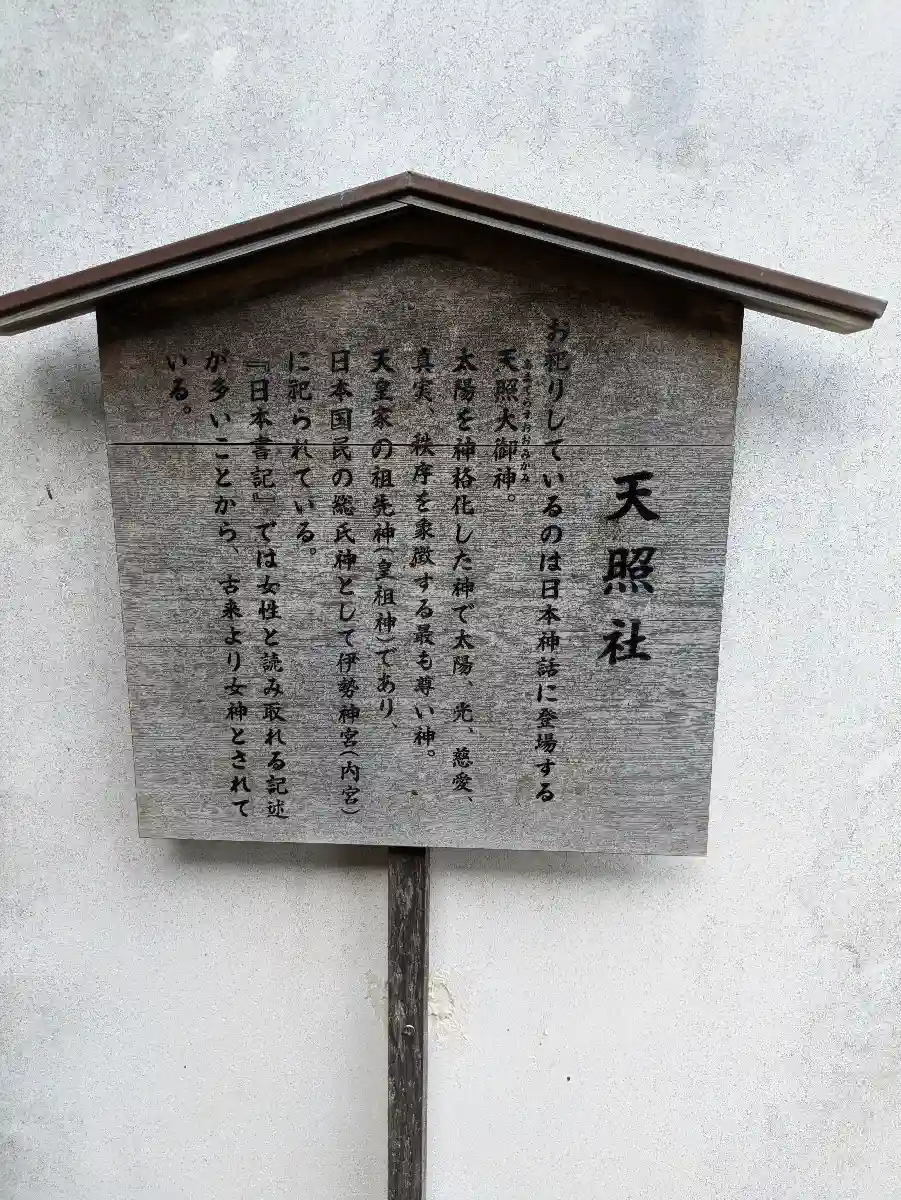 天照社
お祀りしているのは日本神話に登場する
天照大御神。
あまてらすおおみかみ
太陽を神格化した神で太陽、光、慈愛、
真実、秩序を象徴する最も尊い神。
天皇家の祖先神(皇祖神)であり、
日本国民の総氏神として伊勢神宮(内宮)
に祀られている。
『日本書記』では女性と読み取れる記述
が多いことから、古来より女神とされて
いる。